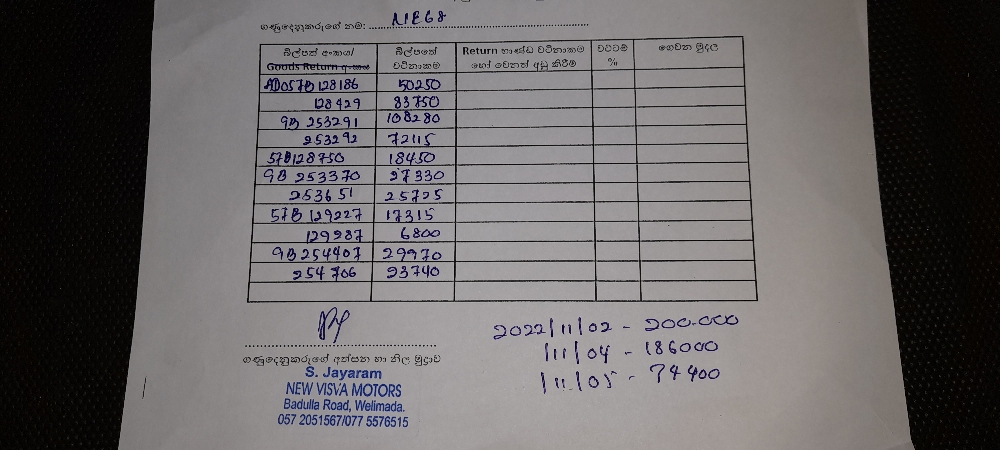 ගණුදෙනුකරුගේ නම: NE68
බිල්පත් අංකය/ Goods Return අංකය බිල්පතේ වටිනාකම Return භාණ්ඩ වටිනාකම හෝ වෙනත් අඩු කිරීම් වට්ටම් % ගෙවන මුදල
AD057B128186 50250
128429 83750
9B 253291 108280
253292 72115
57B128750 18450
9B 253370 27330
253651 25725
57B 129227 17315
129287 6800
9B 254407 29970
254706 23740
2022/11/02 - 200.000
/11/04 - 186000
/11/05 - 74400
ගණුදෙනුකරුගේ අත්සන හා නිල මුද්‍රාව
S. Jayaram
NEW VISVA MOTORS
Badulla Road, Welimada.
057 2051567/077 5576515